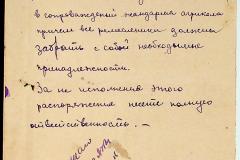 в сопровождении жандарма агрикола
причем все ремесленники должны
забрать с собой необходимые
принадлежности.
За не исполнения этого
распоряжения несете полную
ответственность. —